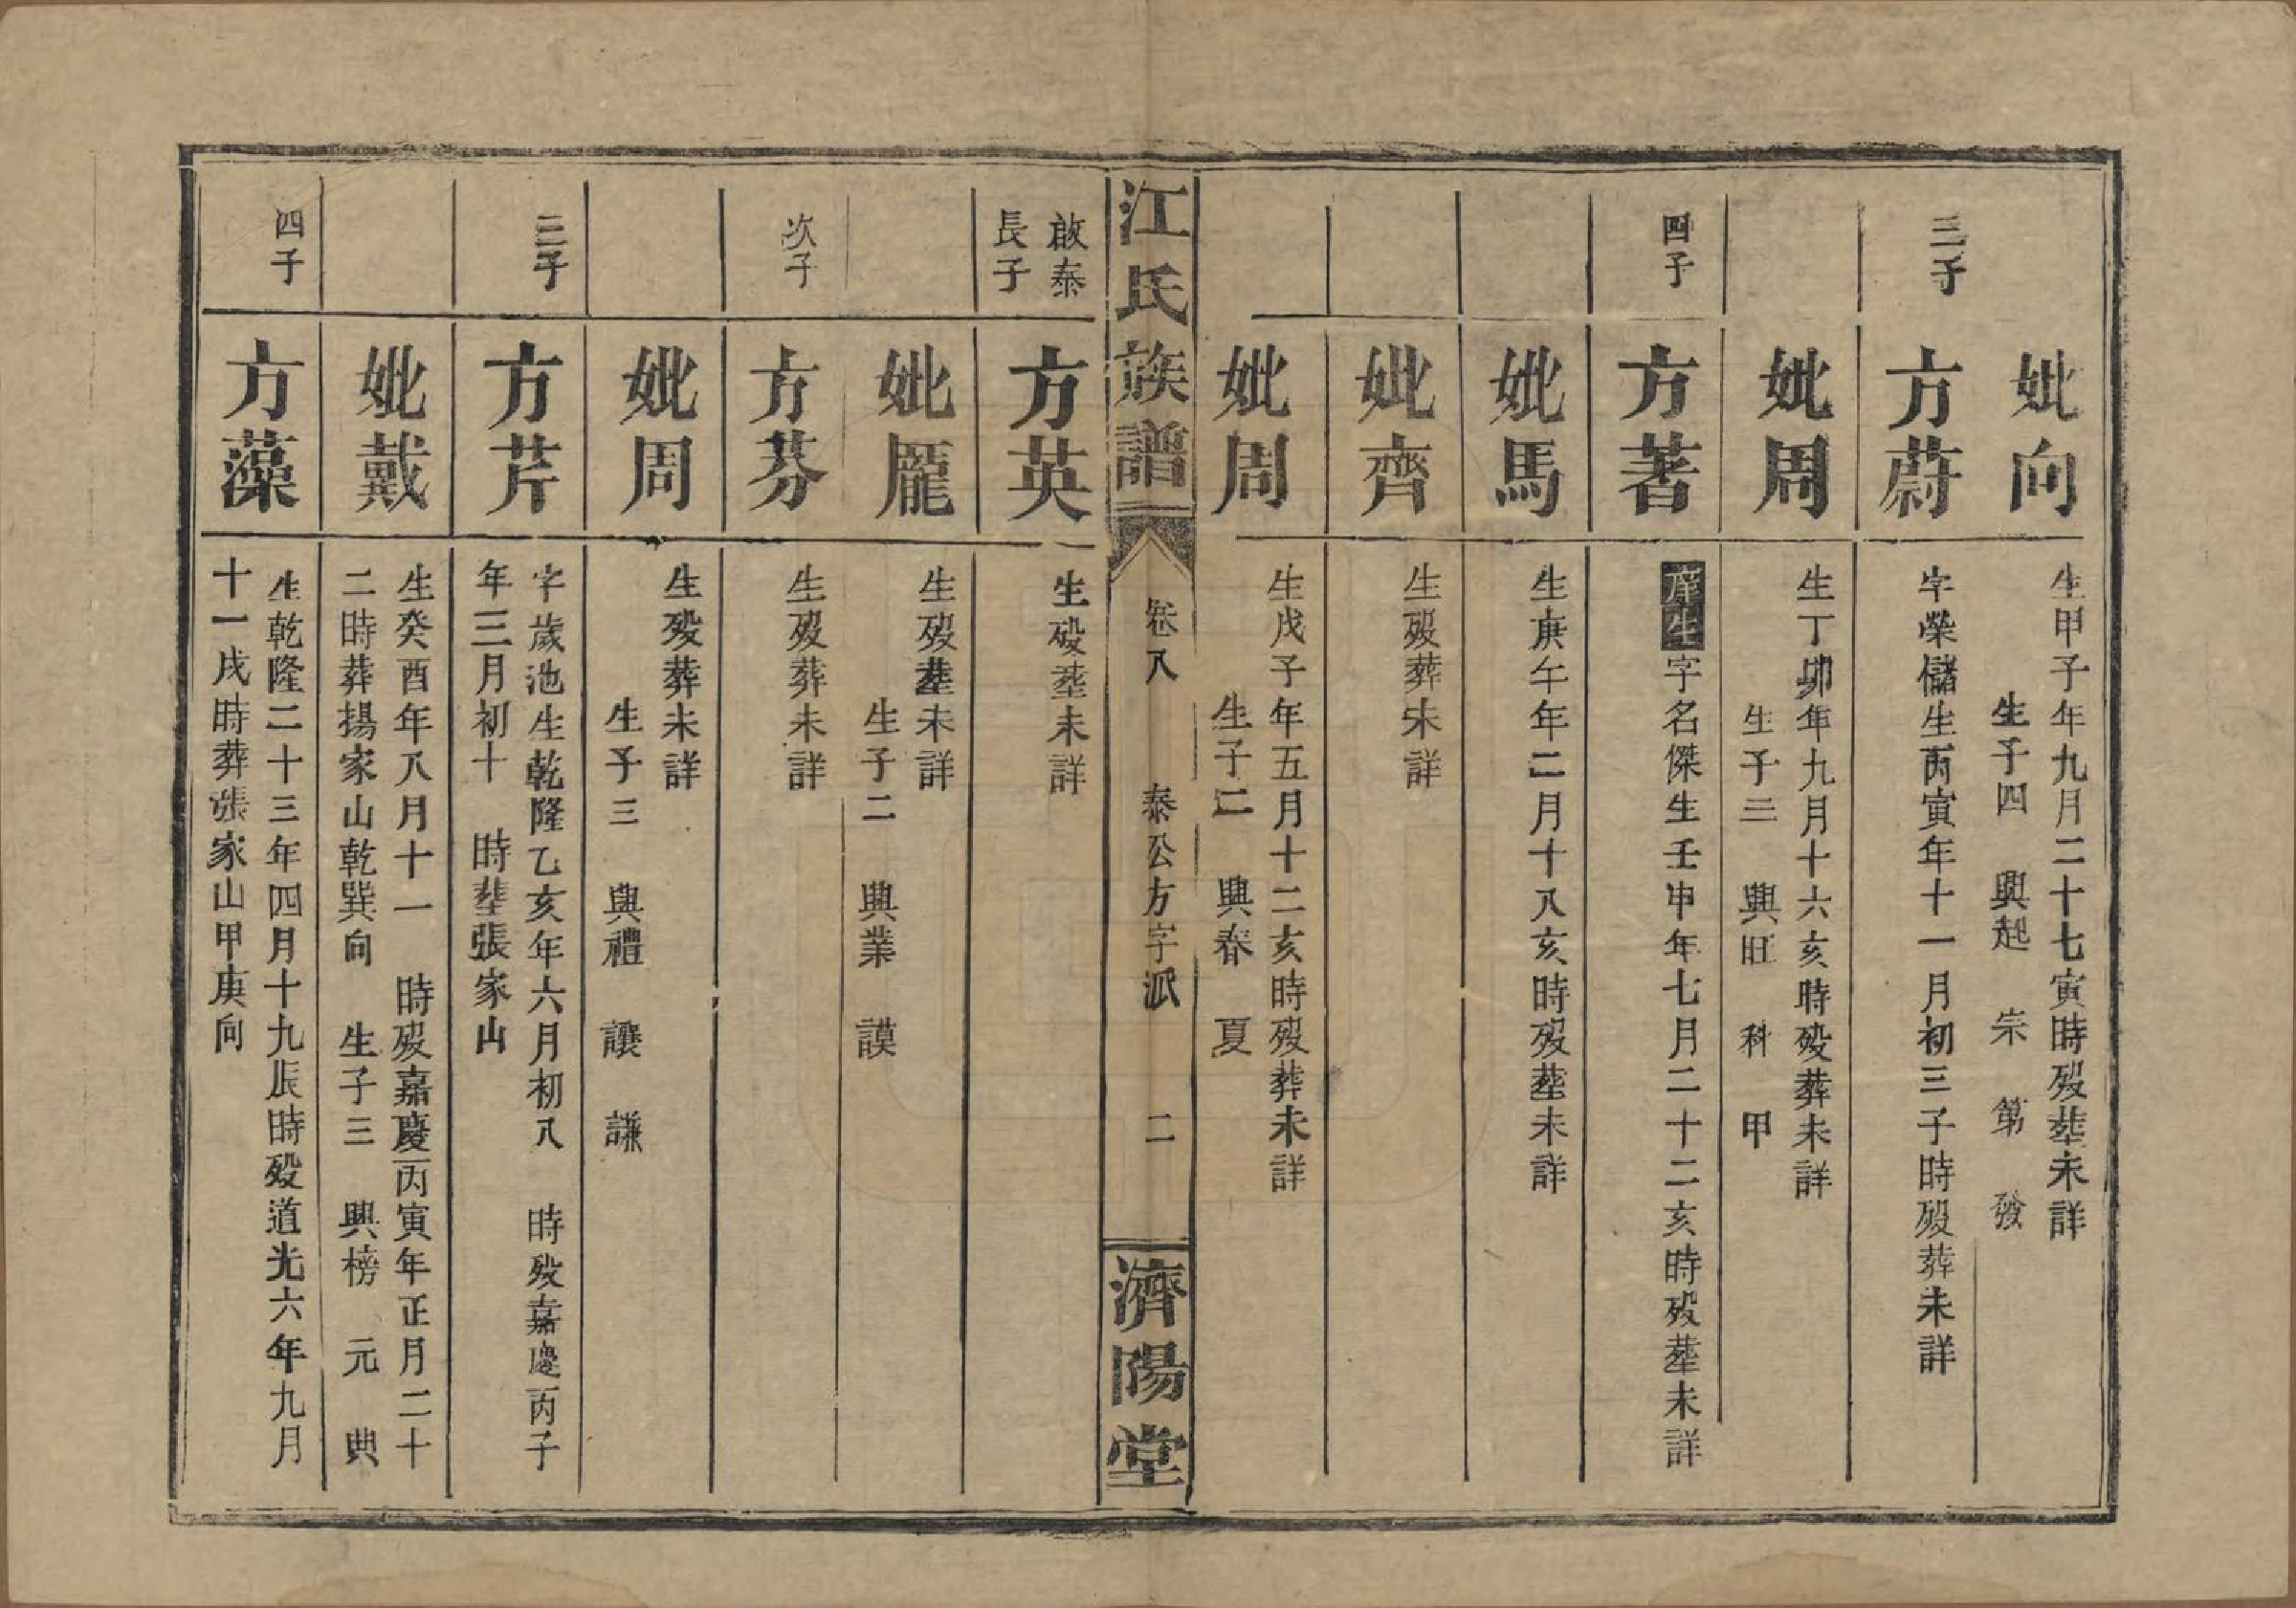 妣向
生甲子年九月二十七寅時歿塟未詳
生子四 興起 宗 第 發
三子
方蔚
字榮儲生丙寅年十一月初三子時歿葬未詳
妣周
生丁卯年九月十六亥時歿葬未詳
生子三 興旺 科 甲
四子
方著
庠生字名傑生壬申年七月二十二亥時歿塟未詳
妣馬
生庚午年二月十八亥時歿塟未詳
妣齊
生歿葬未詳
妣周
生戊子年五月十二亥時歿葬未詳
生子二 興春 夏
江氏族譜
卷八 泰公方字派 二
濟陽堂
啟泰
長子
方英
生歿塟未詳
妣龎
生歿塟未詳
生子二 興業 謨
次子
方芬
生歿葬未詳
妣周
生歿葬未詳
生子三 興禮 讓 謙
三子
方芹
字歲池生乾隆乙亥年六月初八 時歿嘉慶丙子
年三月初十 時塟張家山
妣戴
生癸酉年八月十一 時歿嘉慶丙寅年正月二十
二時葬揚家山乾巽向 生子三 興榜 元 典
四子
方藻
生乾隆二十三年四月十九辰時歿道光六年九月
十一戌時葬張家山甲庚向